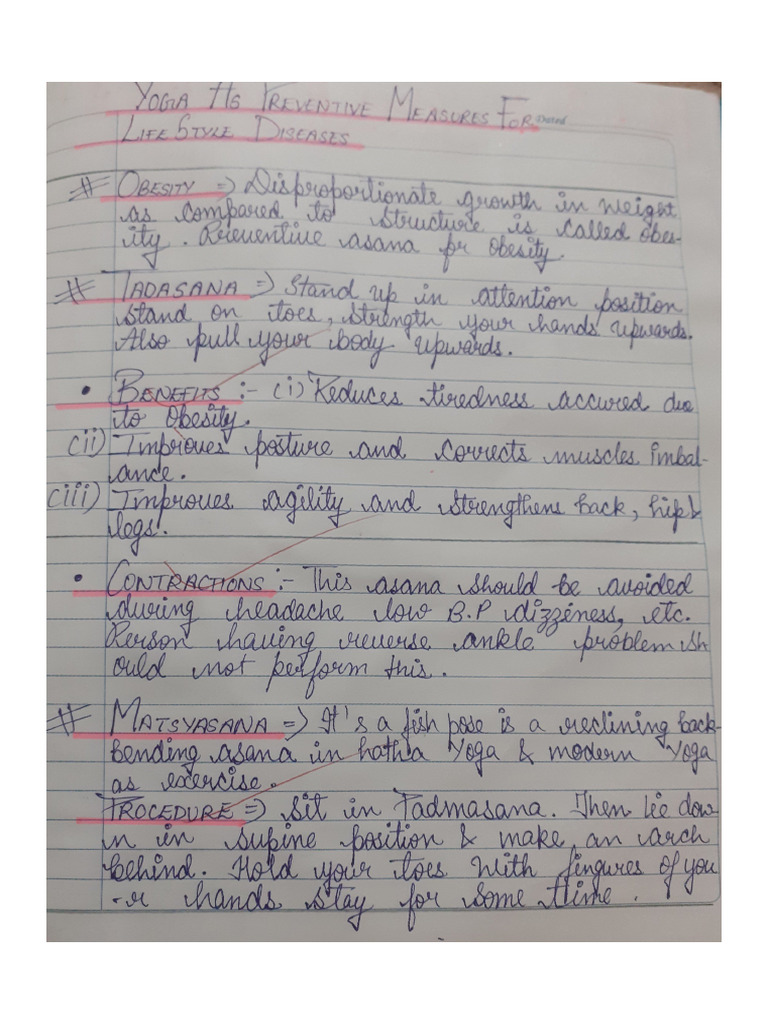 YOGA AS PREVENTIVE MEASURES FOR Dated
LIFE STYLE DISEASES
# OBESITY => Disproportionate growth in weight
as compared to structure is called obes-
ity. Preventive asana for obesity.
# TADASANA => Stand up in attention position
stand on toes, strength your hands upwards.
Also pull your body upwards.
• BENEFITS :- (i) Reduces tiredness accured due
to obesity.
(ii) Improves posture and corrects muscles imbal-
ance.
(iii) Improves agility and strengthens back, hip &
legs.
• CONTRACTIONS :- This asana should be avoided
during headache low B.P dizziness, etc.
Person having reverse ankle problem sh
ould not perform this.
# MATSYASANA => It's a fish pose is a reclining back-
bending asana in hatha Yoga & modern Yoga
as exercise.
PROCEDURE => Sit in Padmasana. Then lie dow
n in supine position & make an arch
behind. Hold your toes with fingures of you
-r hands stay for some time.